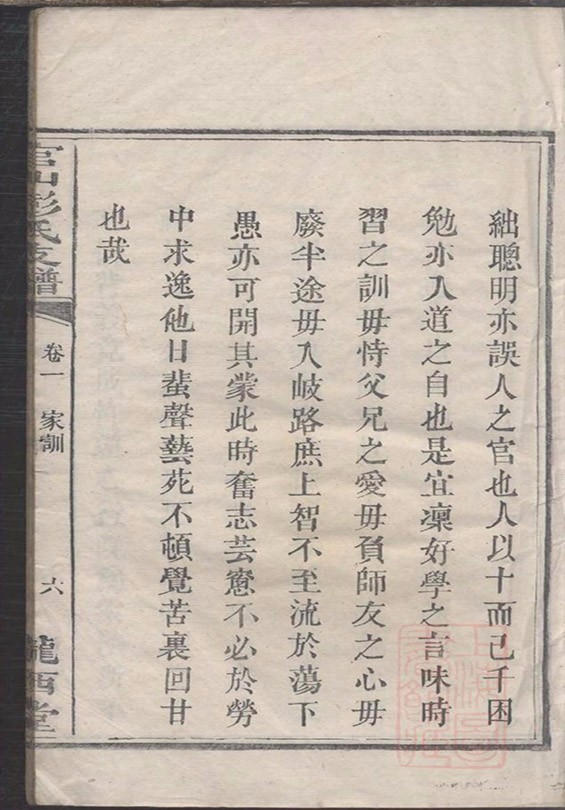 絀聰明亦誤人之官也人以十而己千困
勉亦入道之自也是宜凜好學之言味時
習之訓毋恃父兄之愛毋負師友之心毋
廢半途毋入岐路庶上智不至流於蕩下
愚亦可開其蒙此時奮志芸窻不必於勞
中求逸他日蜚聲藝苑不頓覺苦裏回甘
也哉
官山彭氏支譜
卷一
家訓
六
隴西堂